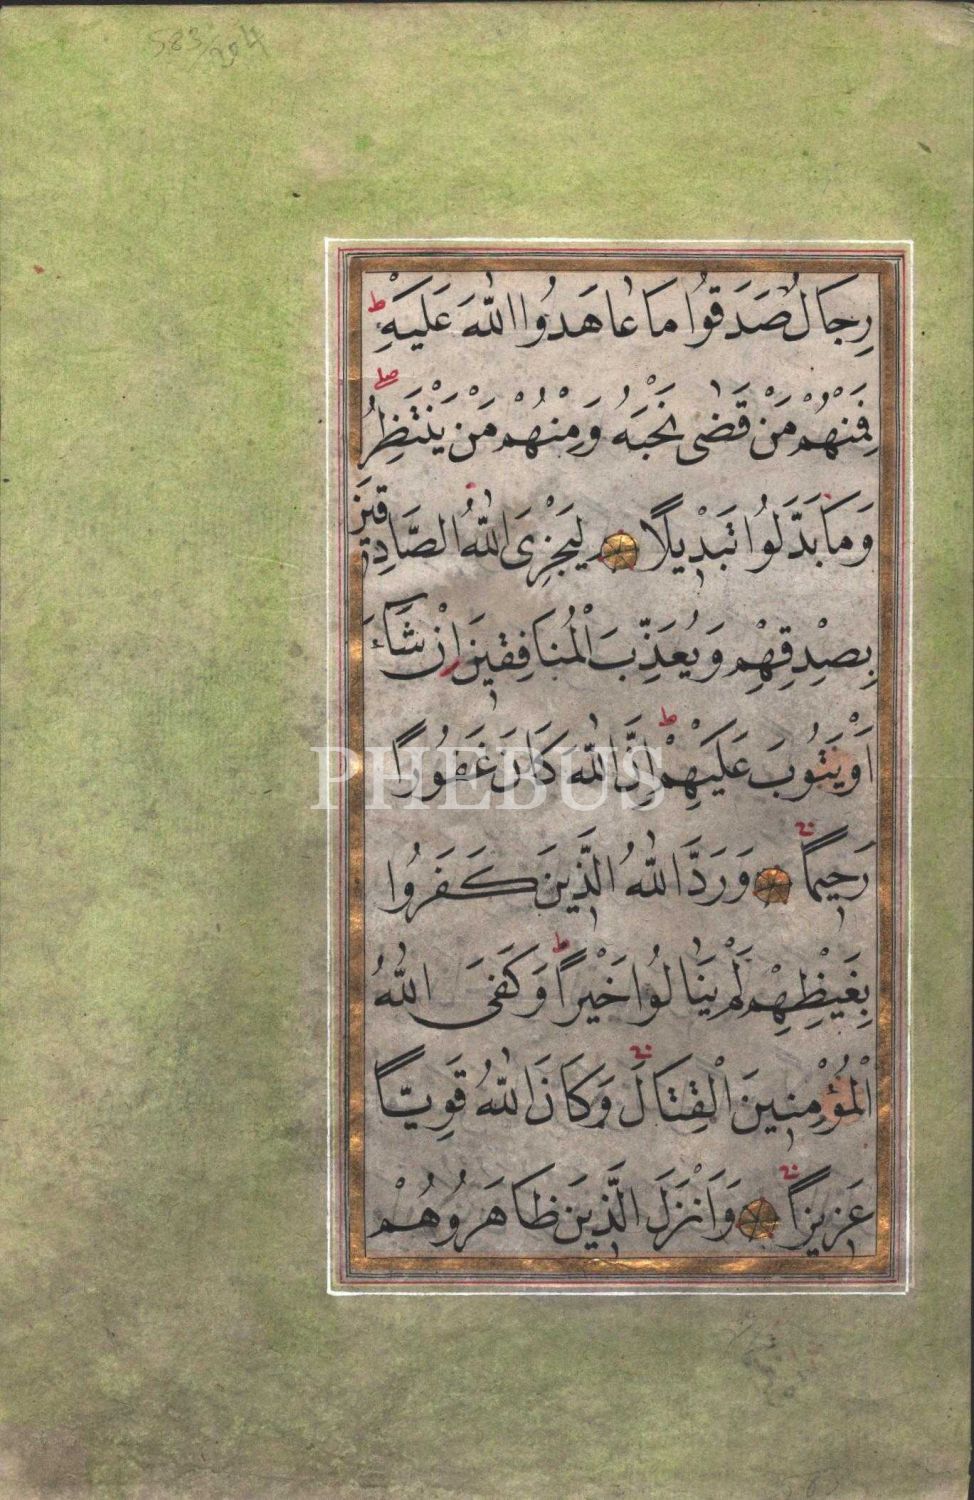 583/204
رِجَالٌ صَدَقُوا مَا عَاهَدُوا اللّٰهَ عَلَيْهِ ط
فَمِنْهُمْ مَنْ قَضٰى نَحْبَهُ وَمِنْهُمْ مَنْ يَنْتَظِرُ صلے
وَمَا بَدَّلُوا تَبْدِيلًا لِيَجْزِىَ اللّٰهُ الصَّادِقِينَ
بِصِدْقِهِمْ وَيُعَذِّبَ الْمُنَافِقِينَ اِنْ شَاءَ
اَوْ يَتُوبَ عَلَيْهِمْ ط اِنَّ اللّٰهَ كَانَ غَفُورًا
PHEBUS
رَحِيمًا وَرَدَّ اللّٰهُ الَّذِينَ كَفَرُوا
بِغَيْظِهِمْ لَمْ يَنَالُوا خَيْرًا ط وَكَفَى اللّٰهُ
الْمُؤْمِنِينَ الْقِتَالَ وَكَانَ اللّٰهُ قَوِيًّا
عَزِيزًا وَاَنْزَلَ الَّذِينَ ظَاهَرُوهُمْ